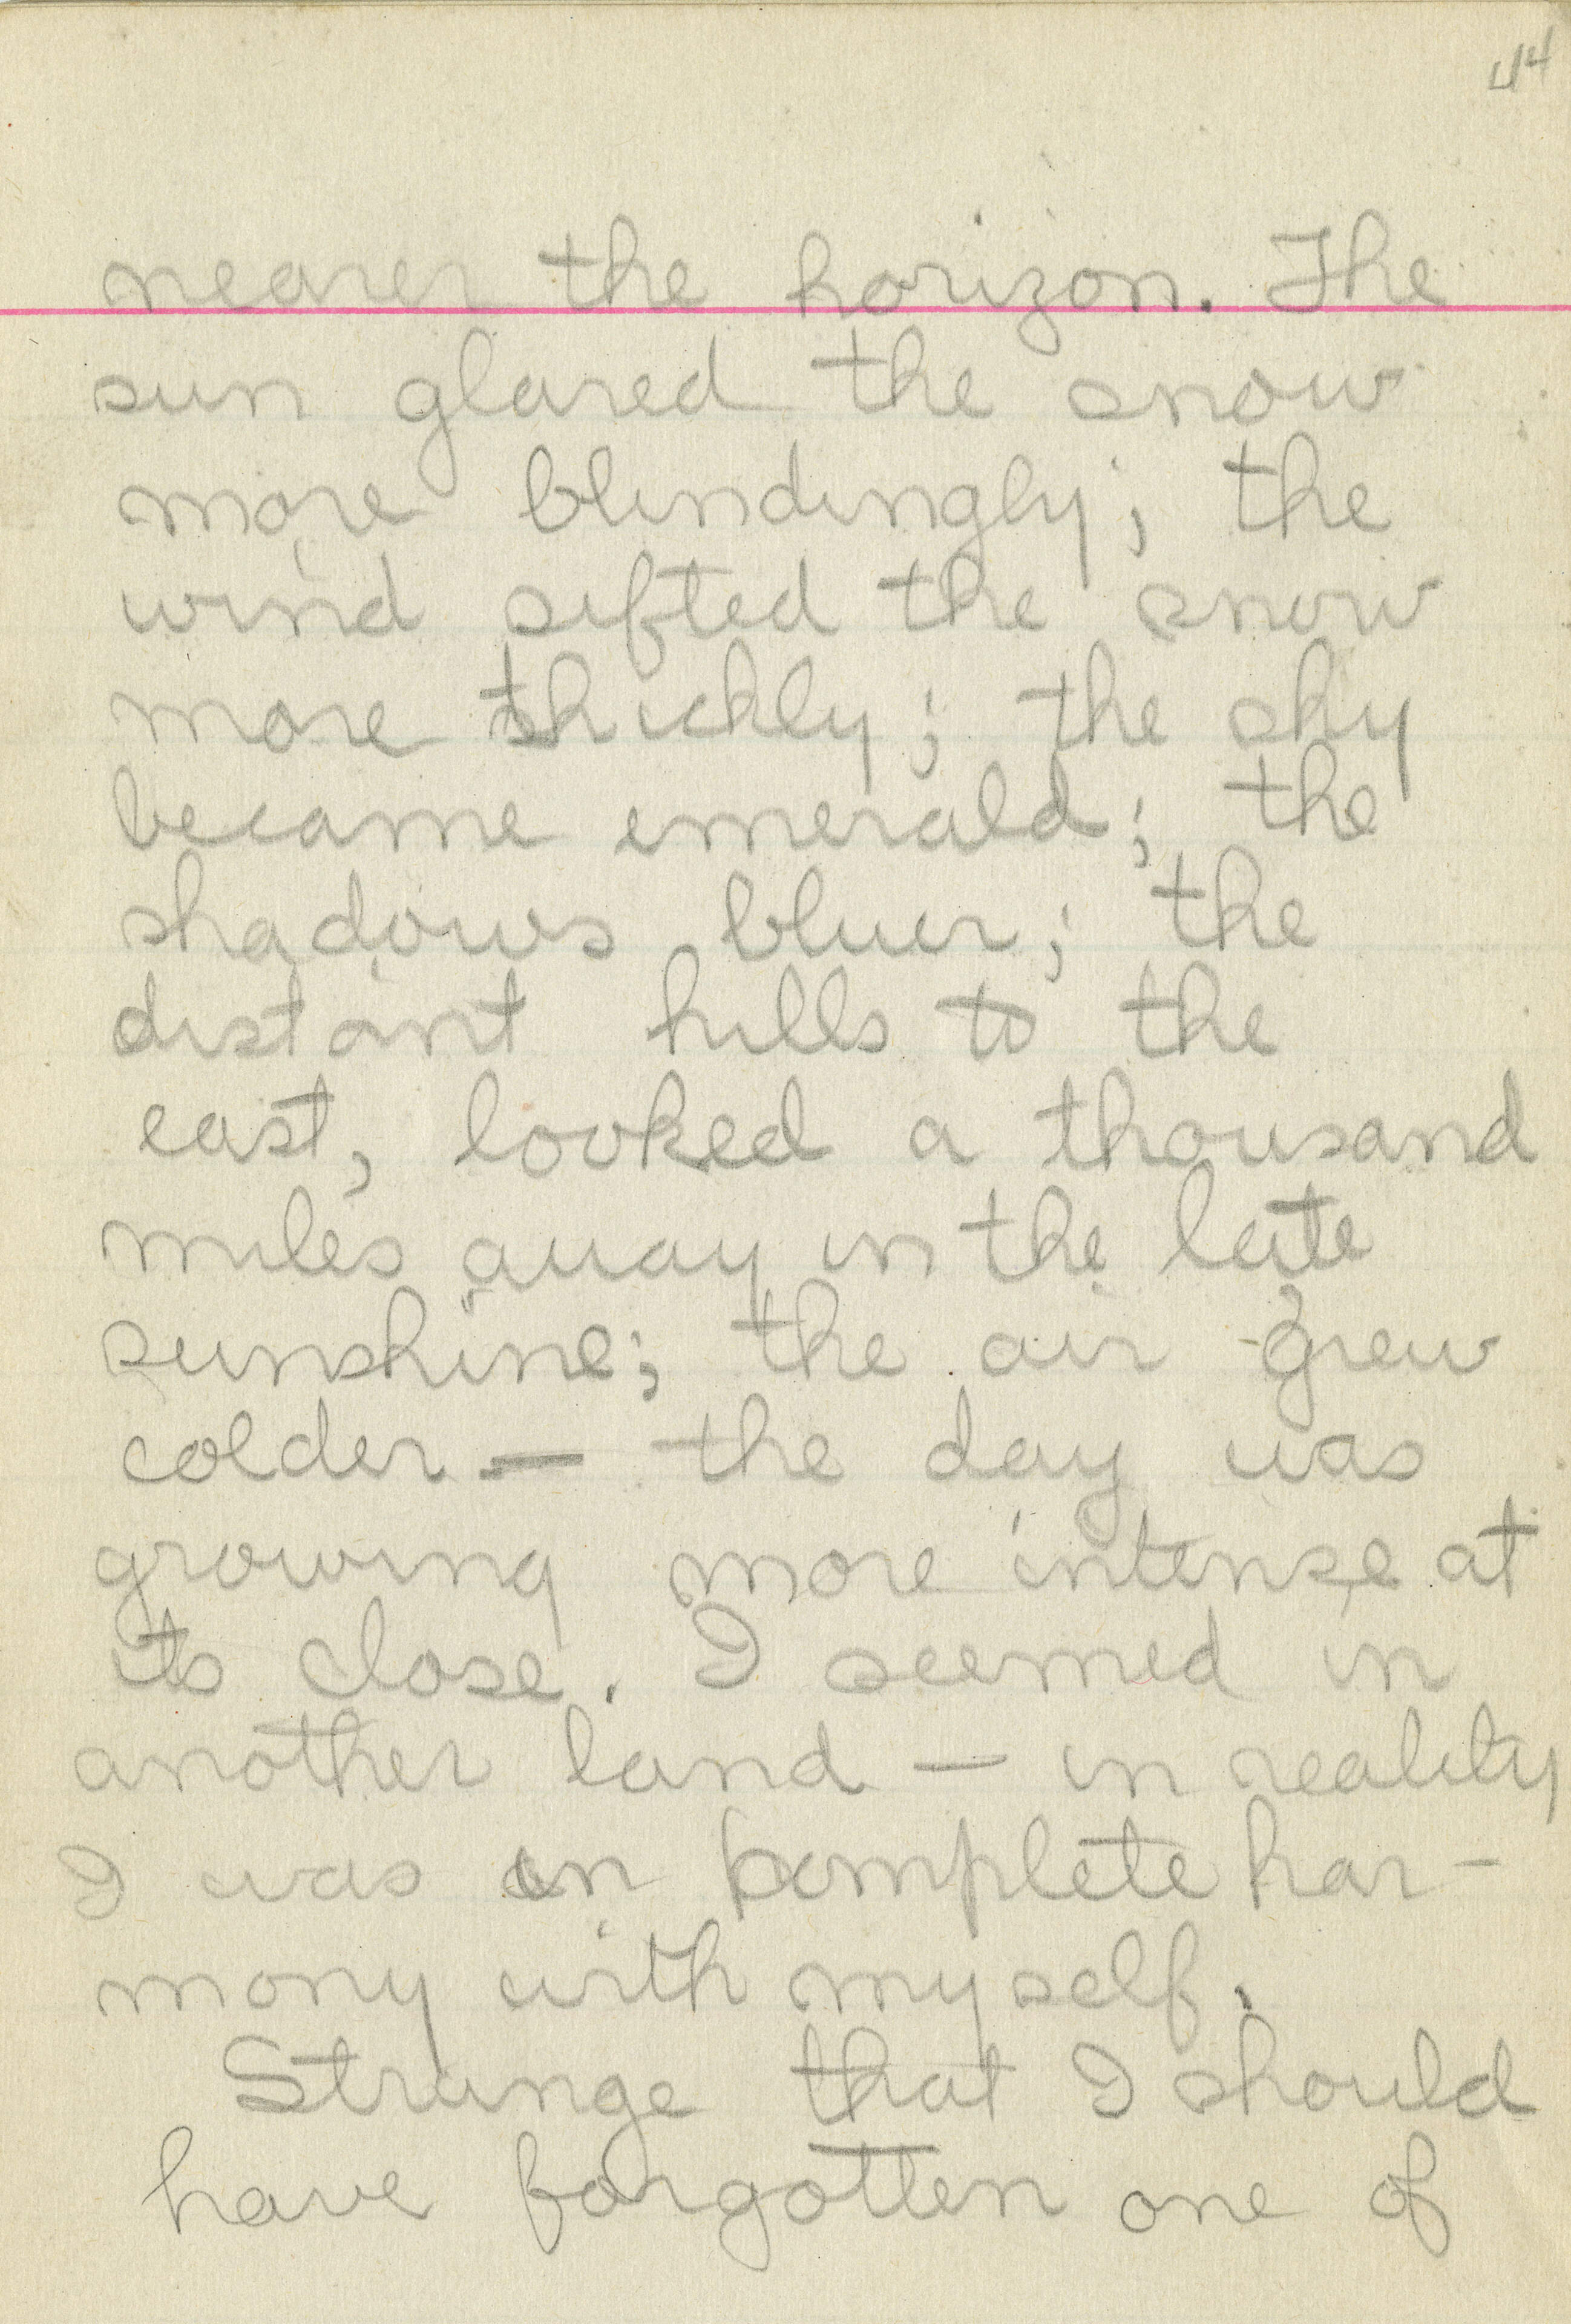 44
nearer the horizon. The
sun glared the snow
more blindingly; the
wind sifted the snow
more thickly; the sky
became emerald; the
shadows bluer; the
distant hills to the
east, looked a thousand
miles away in the late
sunshine; the air grew
colder — the day was
growing more intense at
its close. I seemed in
another land — in reality
I was in complete har-
mony with myself.
Strange that I should
have forgotten one of